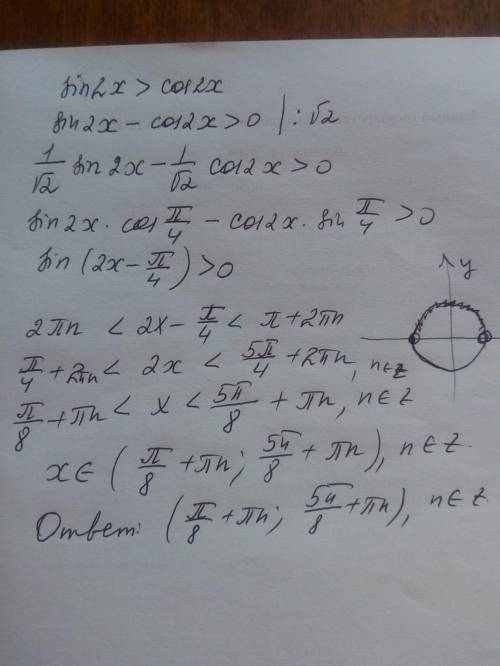 sin2x > cos2x
sin2x − cos2x > 0 | : √2
1/√2 sin 2x − 1/√2 cos2x > 0
sin2x · cos π/4 − cos2x · sin π/4 > 0
sin (2x − π/4) > 0
y
2πn < 2x − π/4 < π + 2πn
π/4 + 2πn < 2x < 5π/4 + 2πn, n∈Z
π/8 + πn < x < 5π/8 + πn, n∈Z
x∈ (π/8 + πn; 5π/8 + πn), n∈Z.
Ответ: (π/8 + πn; 5π/8 + πn), n∈Z.